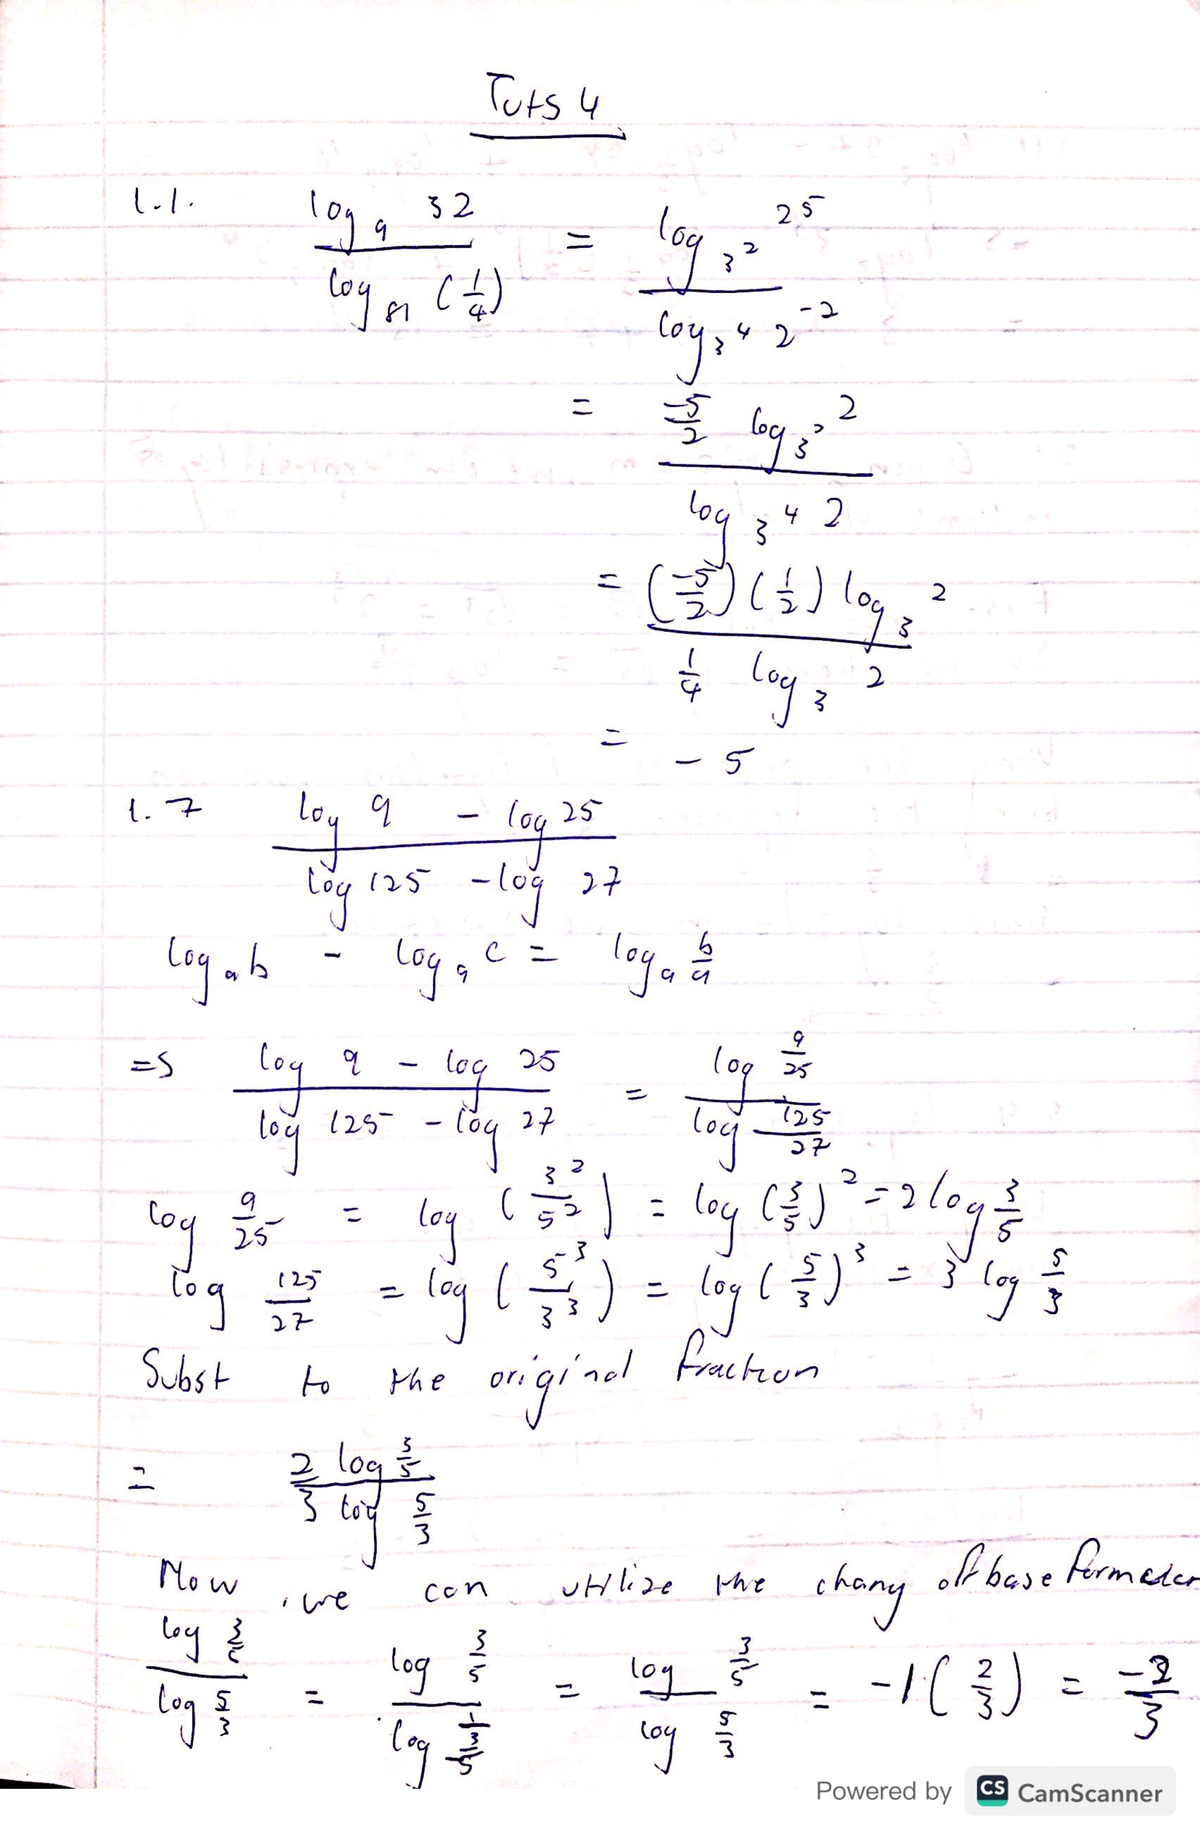 Tuts 4
1.1. log_9 32 / log_81 (1/4) = log_{3^2} 2^5 / log_{3^4} 2^{-2}
= -5/2 log_{3^2} 2 / log_{3^4} 2
= (-5/2)(1/2) log_3 2 / 1/4 log_3 2
= -5
1.7 log 9 - log 25 / log 125 - log 27
log_a b - log_a c = log_a b/a
=> log 9 - log 25 / log 125 - log 27 = log 9/25 / log 125/27
log 9/25 = log (3^2/5^2) = log (3/5)^2 = 2 log 3/5
log 125/27 = log (5^3/3^3) = log (5/3)^3 = 3 log 5/3
Subst to the original fraction
= 2 log 3/5 / 3 log 5/3
Now, we can utilize the chang off base
log 3/5 / log 5/3 = log 3/5 / log = log 3/5 / log 5/3 = -1 (2/3) = -2/3
Powered by CS CamScanner